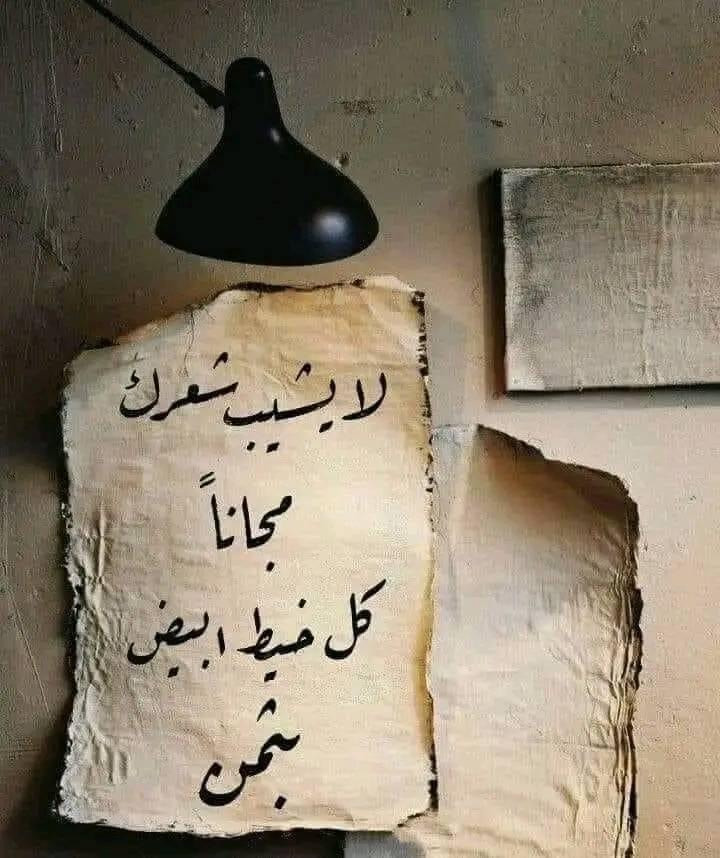 لا يشيب شعرك
مجاناً
كل خيط ابيض
بثمن